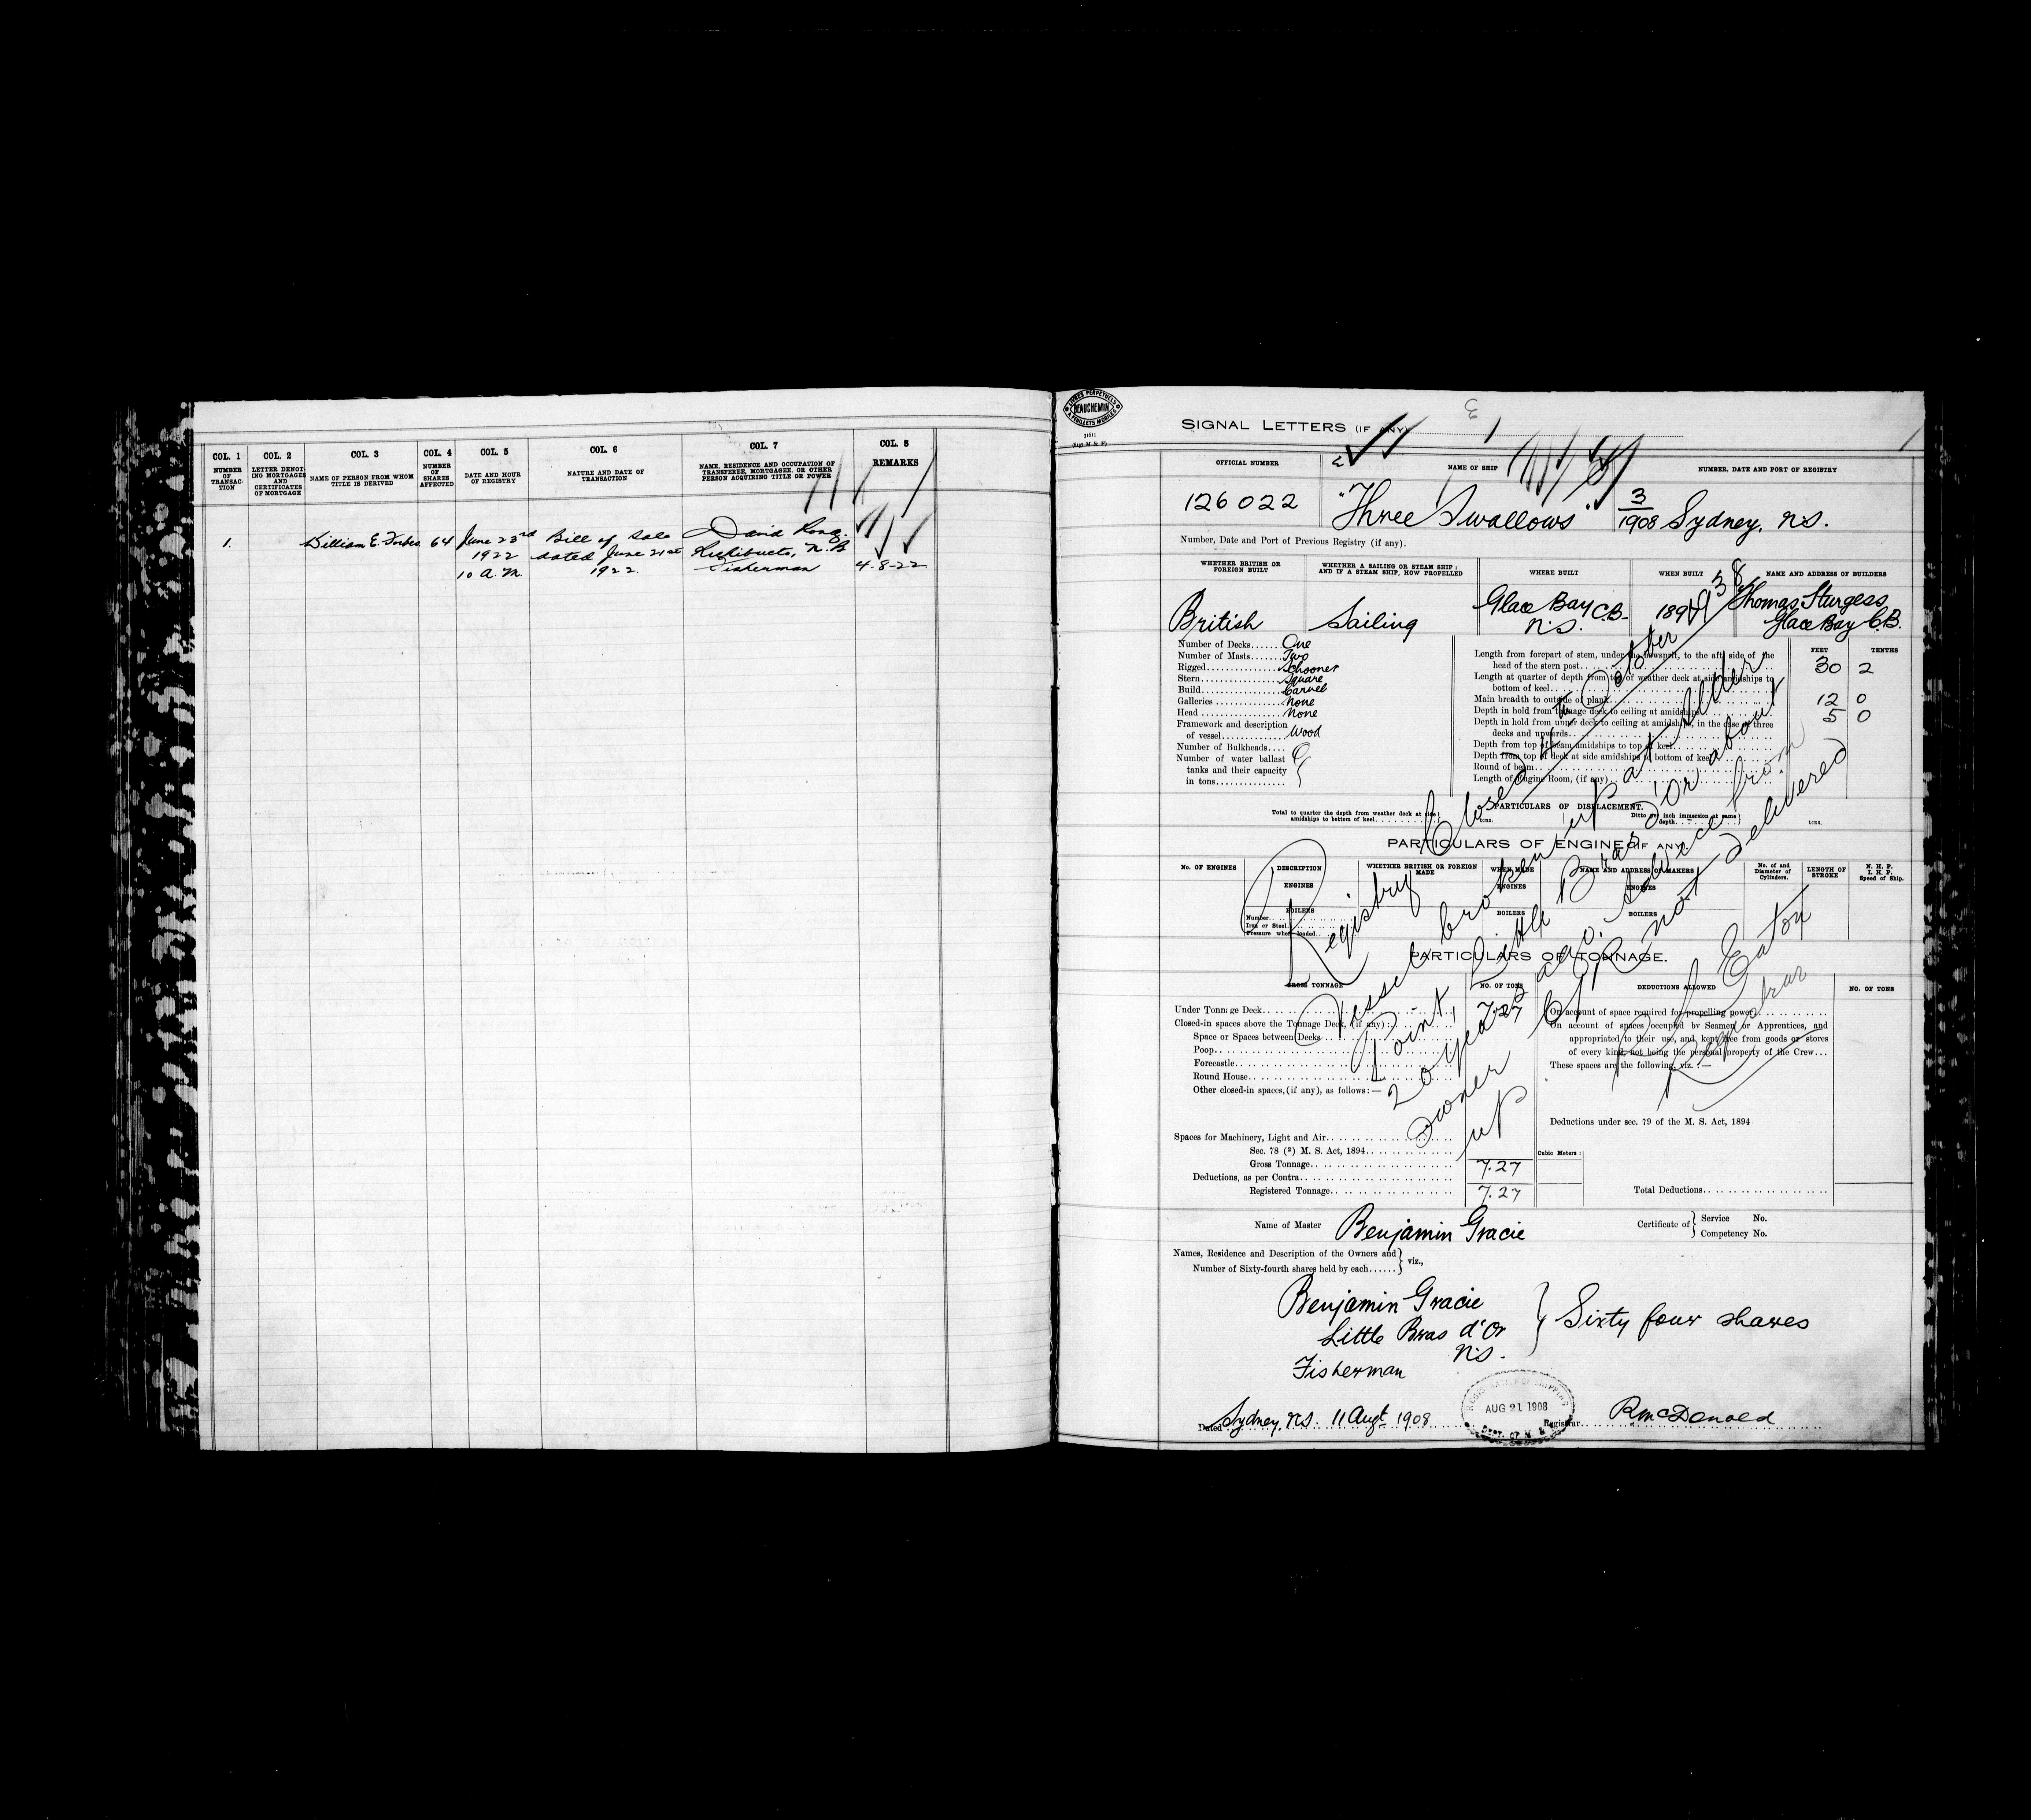 COL. 1
NUMBER OF TRANSAC-TION
COL. 2
LETTER DENOT-ING MORTGAGES AND CERTIFICATES OF MORTGAGE
COL. 3
NAME OF PERSON FROM WHOM TITLE IS DERIVED
COL. 4
NUMBER OF SHARES AFFECTED
COL. 5
DATE AND HOUR OF REGISTRY
COL. 6
NATURE AND DATE OF TRANSACTION
COL. 7
NAME, RESIDENCE AND OCCUPATION OF TRANSFEREE, MORTGAGEE, OR OTHER PERSON ACQUIRING TITLE OR POWER
COL. 8
REMARKS
1. William E. Forbes 64 June 23rd Bill of Sale David Long
1922 dated June 21st Richibucto, N.B
10 A.M. 1922. Fisherman 4-8-22
LIVRES PERPETUELS
BEAUCHEMIN
A FEUILLETS MOBILES
SIGNAL LETTERS (IF ANY)
OFFICIAL NUMBER
NAME OF SHIP
NUMBER, DATE AND PORT OF REGISTRY
126022 "Three Swallows" 3/1908 Sydney, N.S.
Number, Date and Port of Previous Registry (if any).
WHETHER BRITISH OR FOREIGN BUILT
WHETHER A SAILING OR STEAM SHIP; AND IF A STEAM SHIP, HOW PROPELLED
WHERE BUILT
WHEN BUILT
NAME AND ADDRESS OF BUILDERS
British Sailing Glace Bay C.B. N.S. Thomas Sturgess Glace Bay C.B.
Number of Decks One
Number of Masts Two
Rigged Schooner
Stern Square
Build Carvel
Galleries None
Head None
Framework and description of vessel Wood
Number of Bulkheads
Number of water ballast tanks and their capacity in tons
FEET TENTHS
Length from forepart of stem, under the bowsprit, to the aft side of the head of the stern post 30 2
Length at quarter of depth from top of weather deck at side amidships to bottom of keel
Main breadth to outside of plank 12 0
Depth in hold from tonnage deck to ceiling at amidships 5 0
Depth in hold from upper deck to ceiling at amidships, in the case of three decks and upwards
Depth from top of beam amidships to top of keel
Depth from top of deck at side amidships to bottom of keel
Round of beam
Length of Engine Room, (if any)
PARTICULARS OF DISPLACEMENT.
Total to quarter the depth from weather deck at side amidships to bottom of keel tons.
Ditto per inch immersion at same depth tons.
PARTICULARS OF ENGINES (IF ANY)
No. OF ENGINES
DESCRIPTION
ENGINES
BOILERS
Number
Iron or Steel
Pressure when loaded
WHETHER BRITISH OR FOREIGN MADE
WHEN MADE
ENGINES
BOILERS
NAME AND ADDRESS OF MAKERS
ENGINES
BOILERS
No. of and Diameter of Cylinders.
LENGTH OF STROKE
N. H. P. I. H. P. Speed of Ship.
PARTICULARS OF TONNAGE.
GROSS TONNAGE
NO. OF TONS
DEDUCTIONS ALLOWED
NO. OF TONS
Under Tonnage Deck 7.27
Closed-in spaces above the Tonnage Deck, (if any):
Space or Spaces between Decks
Poop
Forecastle
Round House
Other closed-in spaces, (if any), as follows:—
On account of space required for propelling power
On account of spaces occupied by Seamen or Apprentices, and appropriated to their use, and kept free from goods or stores of every kind, not being the personal property of the Crew
These spaces are the following, viz.:—
Deductions under sec. 79 of the M. S. Act, 1894
Spaces for Machinery, Light and Air
Sec. 78 (2) M. S. Act, 1894
Cubic Meters:
Gross Tonnage 7.27
Deductions, as per Contra
Registered Tonnage 7.27
Total Deductions
Registry Closed 4th October
Vessel broken up at Alder
Point, Little Bras d'Or about
20 years ago. Advice from
owner C/R not delivered
up
Eaton
Registrar
Name of Master Benjamin Gracie
Certificate of Service No.
Competency No.
Names, Residence and Description of the Owners and Number of Sixty-fourth shares held by each viz.,
Benjamin Gracie
Little Bras d'Or
N.S.
Fisherman
Sixty four shares
AUG 21 1908
Dated Sydney, N.S. 11 Augt 1908 Registrar R McDonald